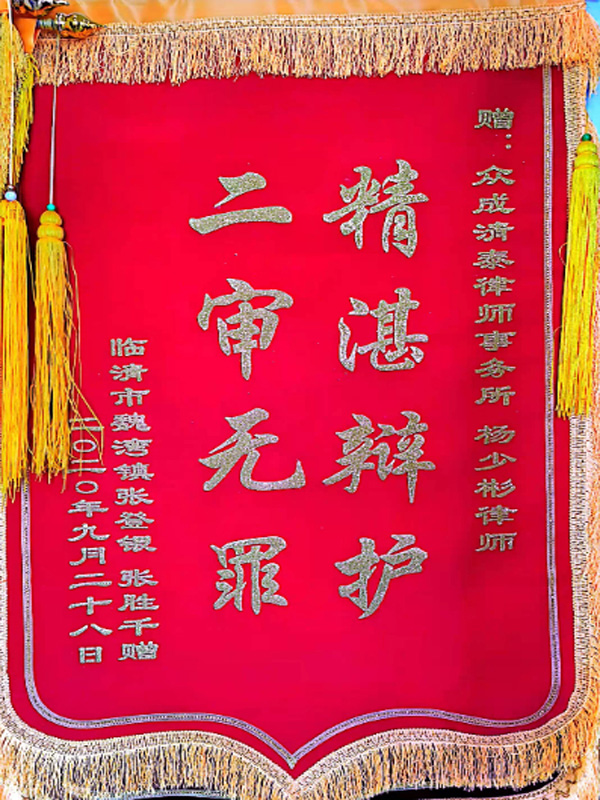 赠：众成清泰律师事务所 杨少彬律师
精湛辩护
二审无罪
临清市魏湾镇张登银 张胜千赠
二〇二〇年九月二十八日